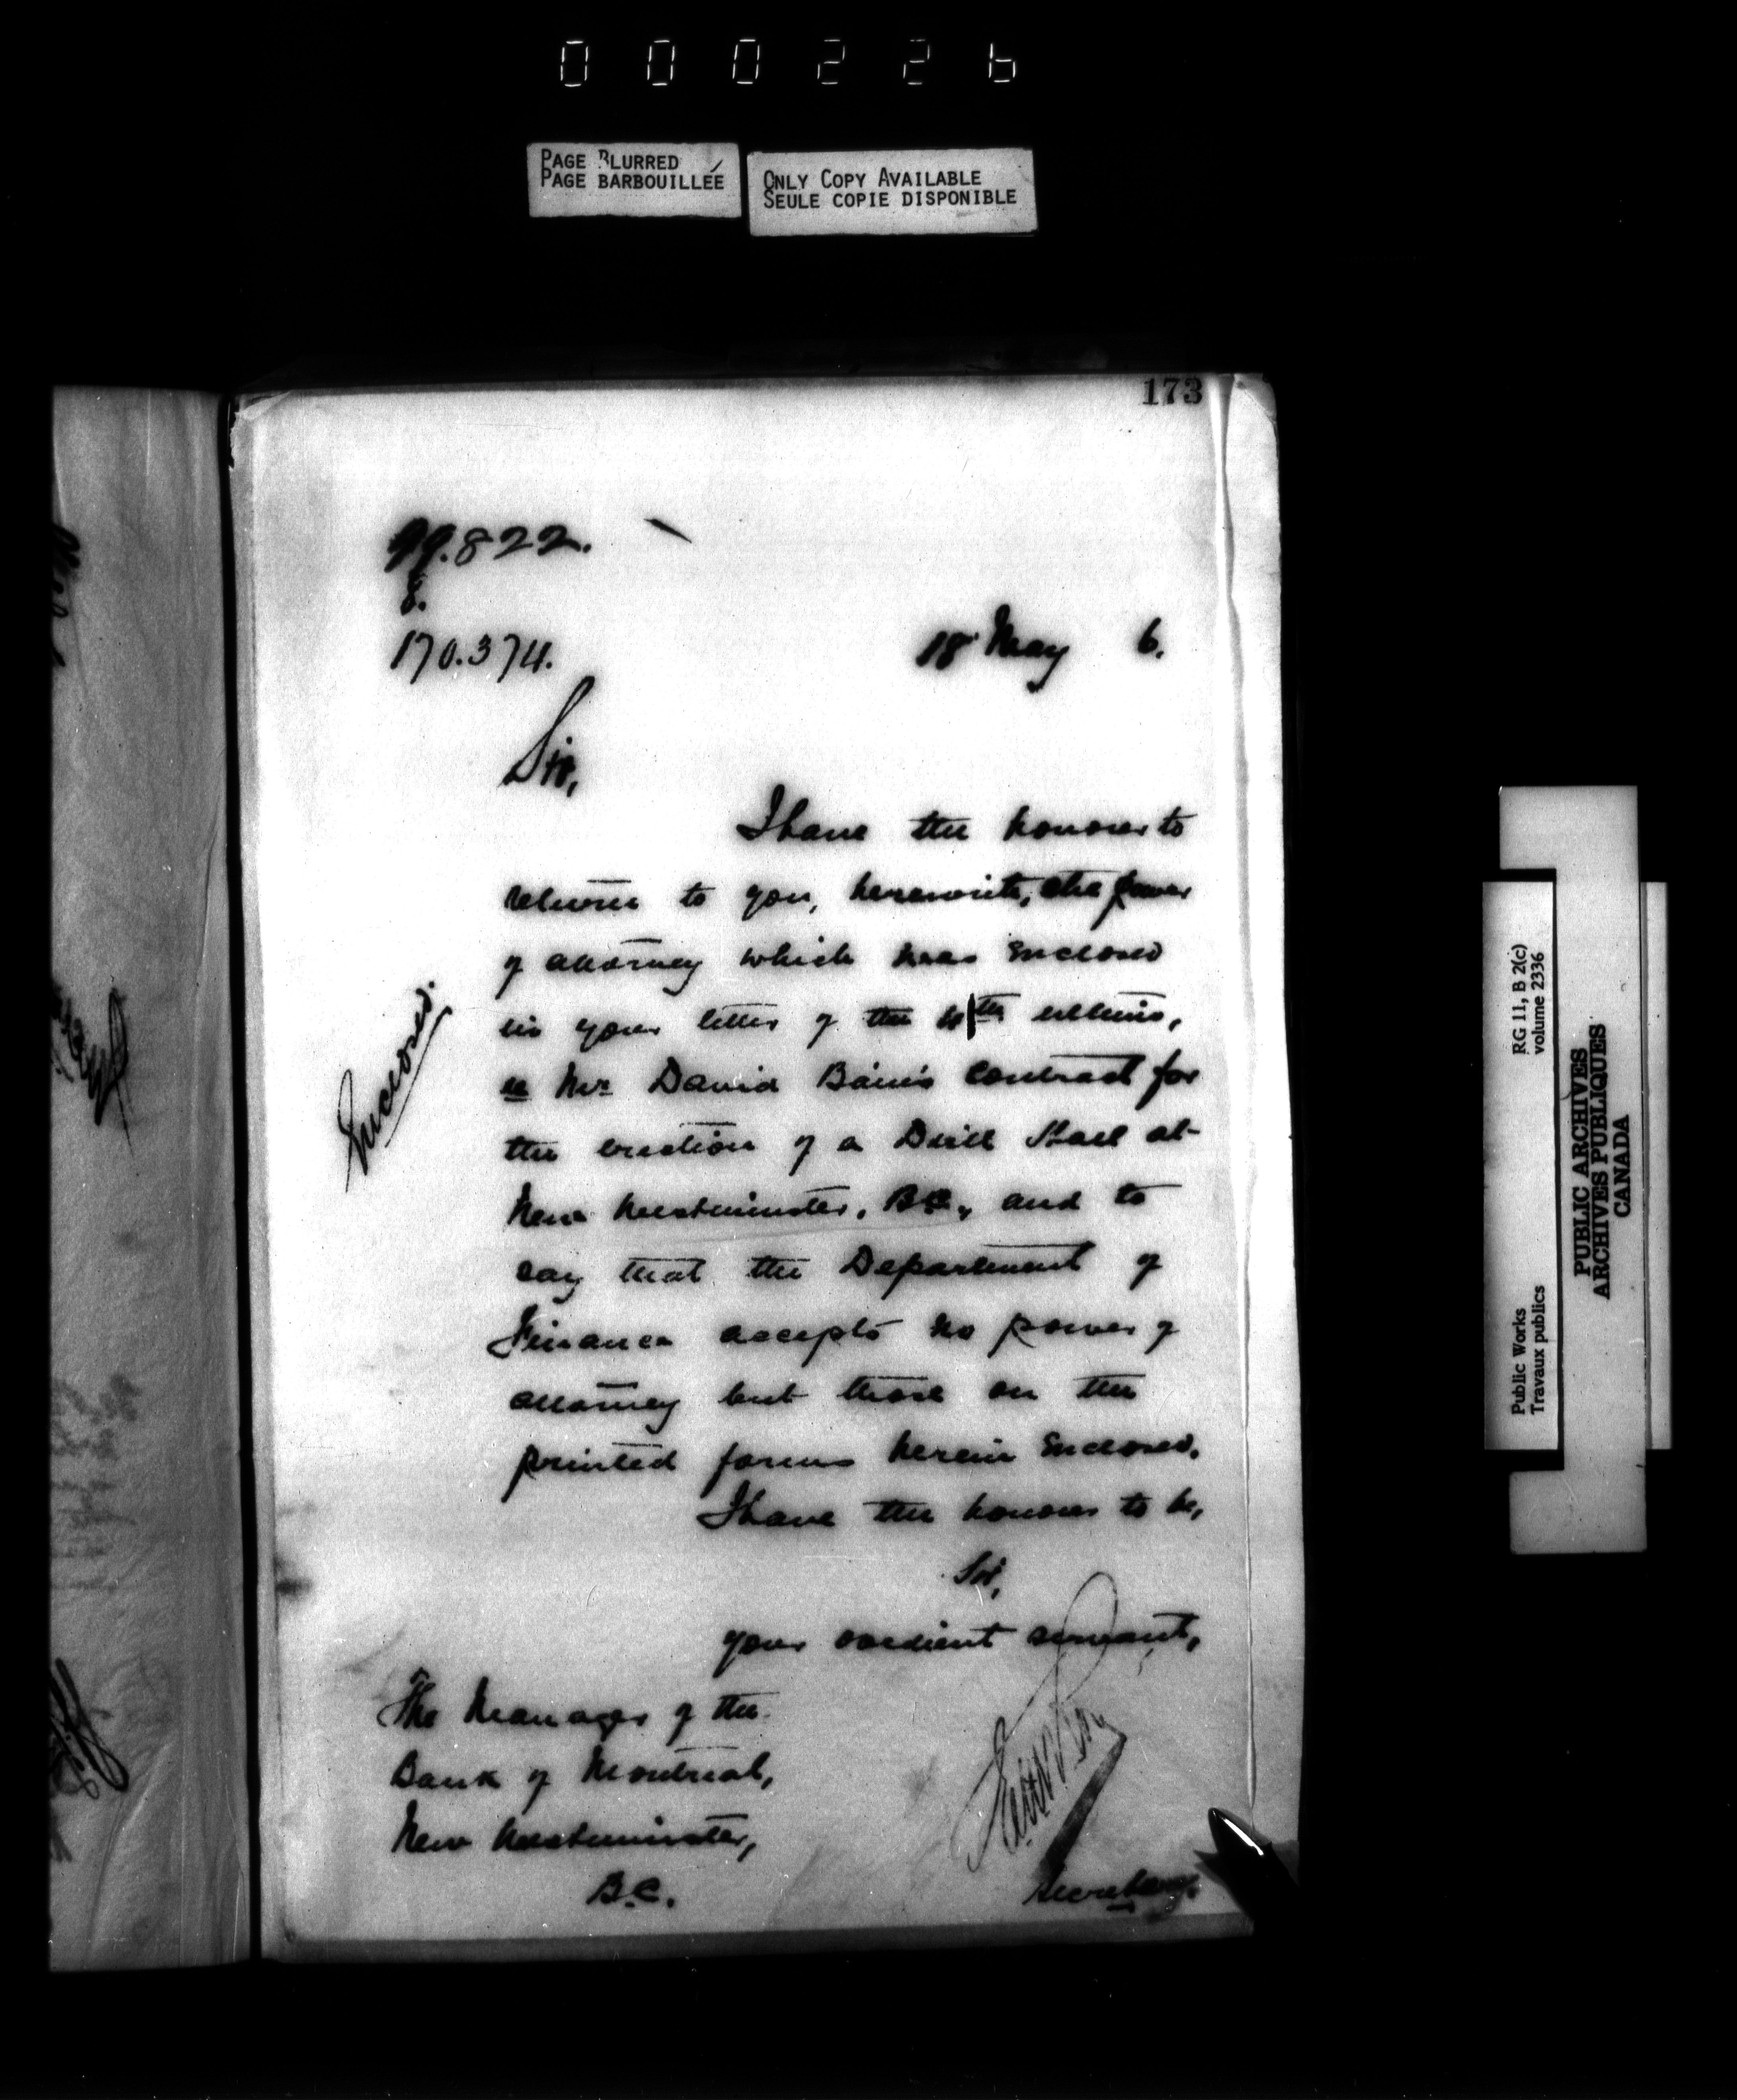 000226
PAGE BLURRED
PAGE BARBOUILLÉE
ONLY COPY AVAILABLE
SEULE COPIE DISPONIBLE
173
99.822.
8.
170.374.
18 May 6.
Sir,
I have the honour to
return to you, herewith, the power
of attorney which was enclosed
in your letter of the ultimo,
re Mr David Bain's contract for
the erection of a Drill Hall at
New Westminster, B.C., and to
say that the Department of
Finance accepts no power of
attorney but those on the
printed forms herein enclosed.
Enclosed.
I have the honour to be,
Sir,
your obedient servant,
The Manager of the
Bank of Montreal,
New Westminster,
B.C.
Secretary.
RG 11, B 2(c)
volume 2336
Public Works
Travaux publics
PUBLIC ARCHIVES
ARCHIVES PUBLIQUES
CANADA